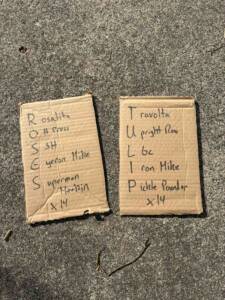 Rosalita
OH Press
SSH
Eyeron Mike
Superman
Merkin
x14
Travolta
Upright Row
LBC
Iron Mike
Pickle Pounder
x14